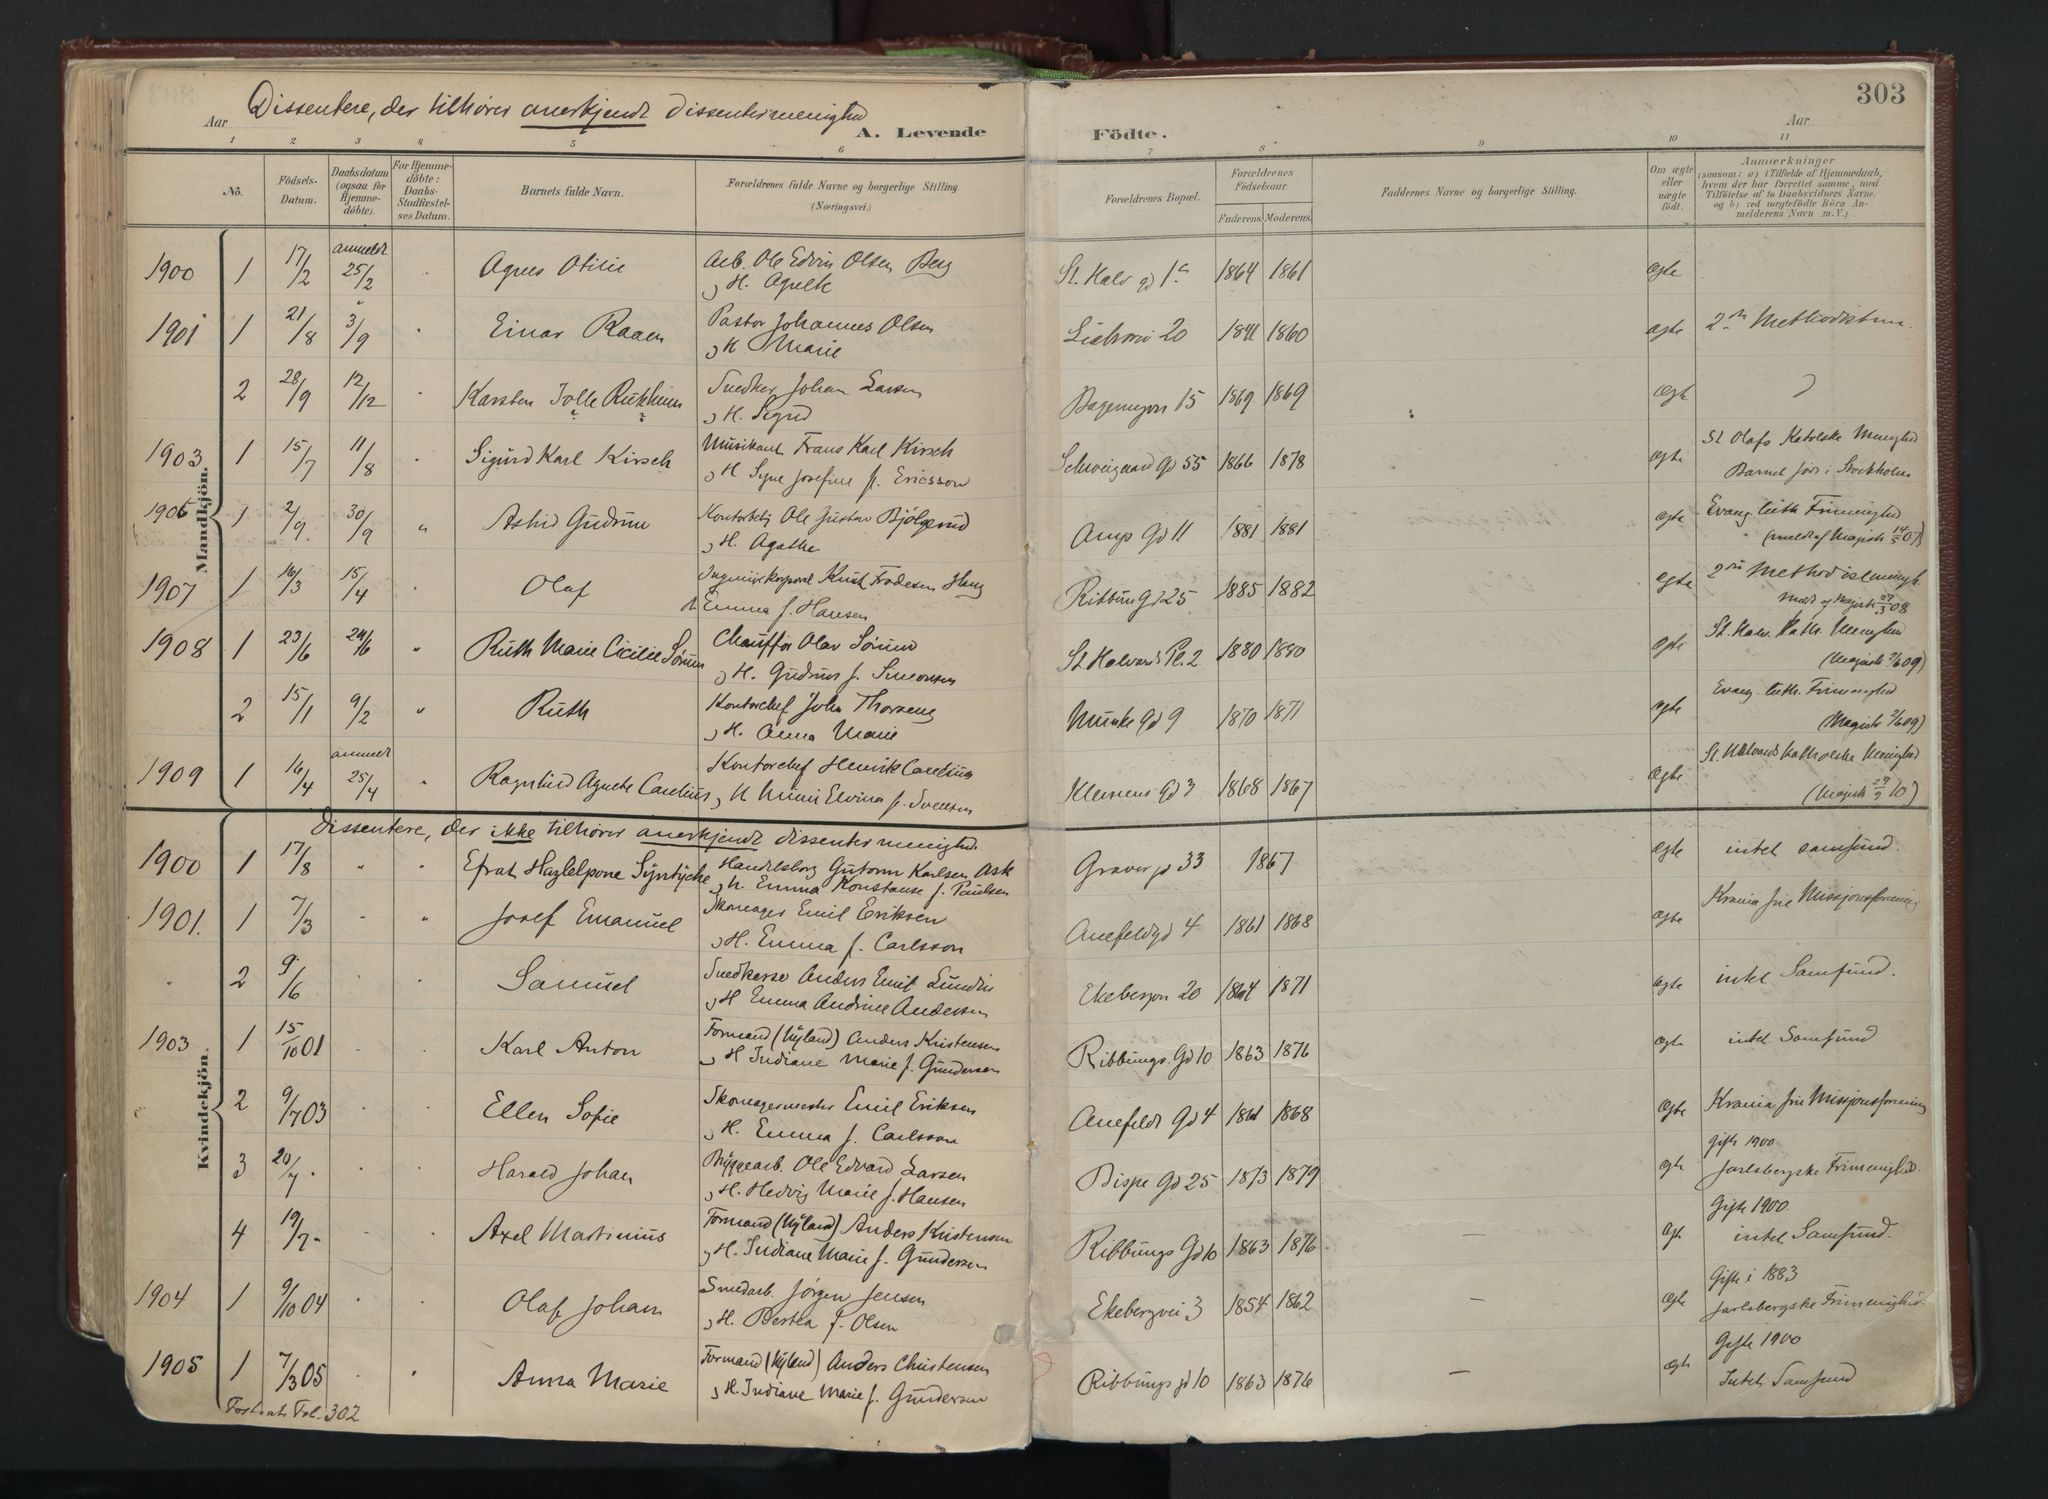 303
Dissentere, der tilhører anerkjendt dissentermenighed
Aar
A. Levende
Födte.
Aar
1 2 3 4 5 6 7 8 9 10 11
No.
Födsels-Datum.
Daabsdatum (ogsaa for Hjemme-döbte).
For Hjemme-döbte: Daabs-Stadfæstel-ses Datum.
Barnets fulde Navn.
Forældrenes fulde Navne og borgerlige Stilling.
(Næringsvei.)
Forældrenes Bopæl.
Forældrenes Födselsaar.
Faderens. Moderens.
Faddernes Navne og borgerlige Stilling.
Om ægte eller uægte födt.
Anmærkninger
(saasom: a) i Tilfælde af Hjemmedaab, hvem der har forrettet samme, med Tilföielse af to Daabsvidners Navne. og b) ved uægtefödte Börn An-melderens Navn m.V.)
Mandkjön.
1900 1 17/2 anmeldt 25/2 Agnes Otilie Arb. Ole Edvin Olsen Berg
St. Halv gd 1 1864 1861 ægte
1901 1 21/8 3/9 Einar Raaen Pastor Johannes Olsen
H Marie 20 1841 1860 ægte 2
2 28/9 12/12 Karsten Rukhum Snedker Johan Larsen
H. Sigrid 15 1869 1869 ægte
1903 1 15/7 11/8 Sigurd Karl Kirsch Musikant Frans Karl Kirsch
H Signe Josefine f. Ericsson Schweigaard Gd 55 1866 1878 ægte St Olafs Katolske Menighed
Barnet født i Stockholm
1905 1 2/9 30/9 " Astrid Gudrun Kontorbetj Ole Gustav Bjølgerud
H. Agathe Gd 11 1881 1881 ægte Evang. luth Frimenighed
(meldt af Magistr 14/5 07)
1907 1 16/3 15/4 Olaf
H Emma f. Hansen Ribbung Gd 25 1885 1882 ægte 2den Methodistmenigh.
1908 1 23/6 24/6 " Ruth Marie Cicilie Sørum Chauffør Olav Sørum
H. Gudrun f. Simonsen St Halvards Pl. 2 1880 1880 ægte St. Halv. Kath. Menighed
(Magistr 2/6 09)
2 15/11 9/2 " Ruth Kontorchef John Thorseng
H. Anna Marie Munke Gd 9 1870 1871 ægte Evang. luth. Frimenighed
(Magistr 2/6 09)
1909 1 16/4 anmeldt 25/4 " Ragnhild Agnete Carelius Kontorchef Henrik Carelius
H Mimi Elvina f. Svensen Klemens Gd 3 1868 1867 ægte St. Halvards katholske Menighed
Dissentere, der ikke tilhører anerkjendt dissentermenighed.
Kvindekjön.
1900 1 17/8 " " Efrat Hazlelpone Syntyche Handelsborg Gutorm Karlsen Ask
H. Emma Konstanse f. Paulsen Graver gd 33 1867 ægte intet samfund.
1901. 1 7/3 " " Josef Emanuel Skomager Emil Eriksen
H. Emma f. Carlsson Anefeldtgd 4 1861 1868 ægte Krania frie Missjonsforening
" 2 9/6 Samuel Anders Emil Lundin
H Emma Andrine Andersen 20 1864 1871 ægte intet Samfund.
1903 1 15/10 01 Karl Anton Formand (Nyland) Anders Kristensen
H Indiane Marie f. Gundersen Ribbungs Gd 10 1863 1876 ægte intet Samfund
2 9/7 03 Ellen Sofie Skomagermester Emil Eriksen
H. Emma f. Carlsson Anefeldt Gd 4 1861 1868 ægte Krania frie Missjonsforening
3 20/7 Harald Johan Bryggearb. Ole Edvard Larsen
H. Hedvig Marie f. Hansen Bispe Gd 25 1873 1879 ægte Gifte 1900
Jarlsbergske Frimenighed.
4 19/7 Axel Martinius Formand (Nyland) Anders Kristensen
H. Indiane Marie f. Gundersen Ribbungs Gd 10 1863 1876 – ægt Gifte 1900.
intet Samfund.
1904 1 9/10 04 Olaf Johan Smedarb. Jørgen Jensen
H. Bertha f. Olsen Ekebergvei 3 1854 1862 – ægte Gifte i 1883
Jarlsbergske Frimenighed.
1905 1 7/3 05 " Anna Marie Formand (Nyland) Anders Christensen
H. Indiane Marie f. Gundersen Ribbungs gd 10 1863 1876 – ægte Gifte 1900
Intet Samfund
Fortsat Fol. 302